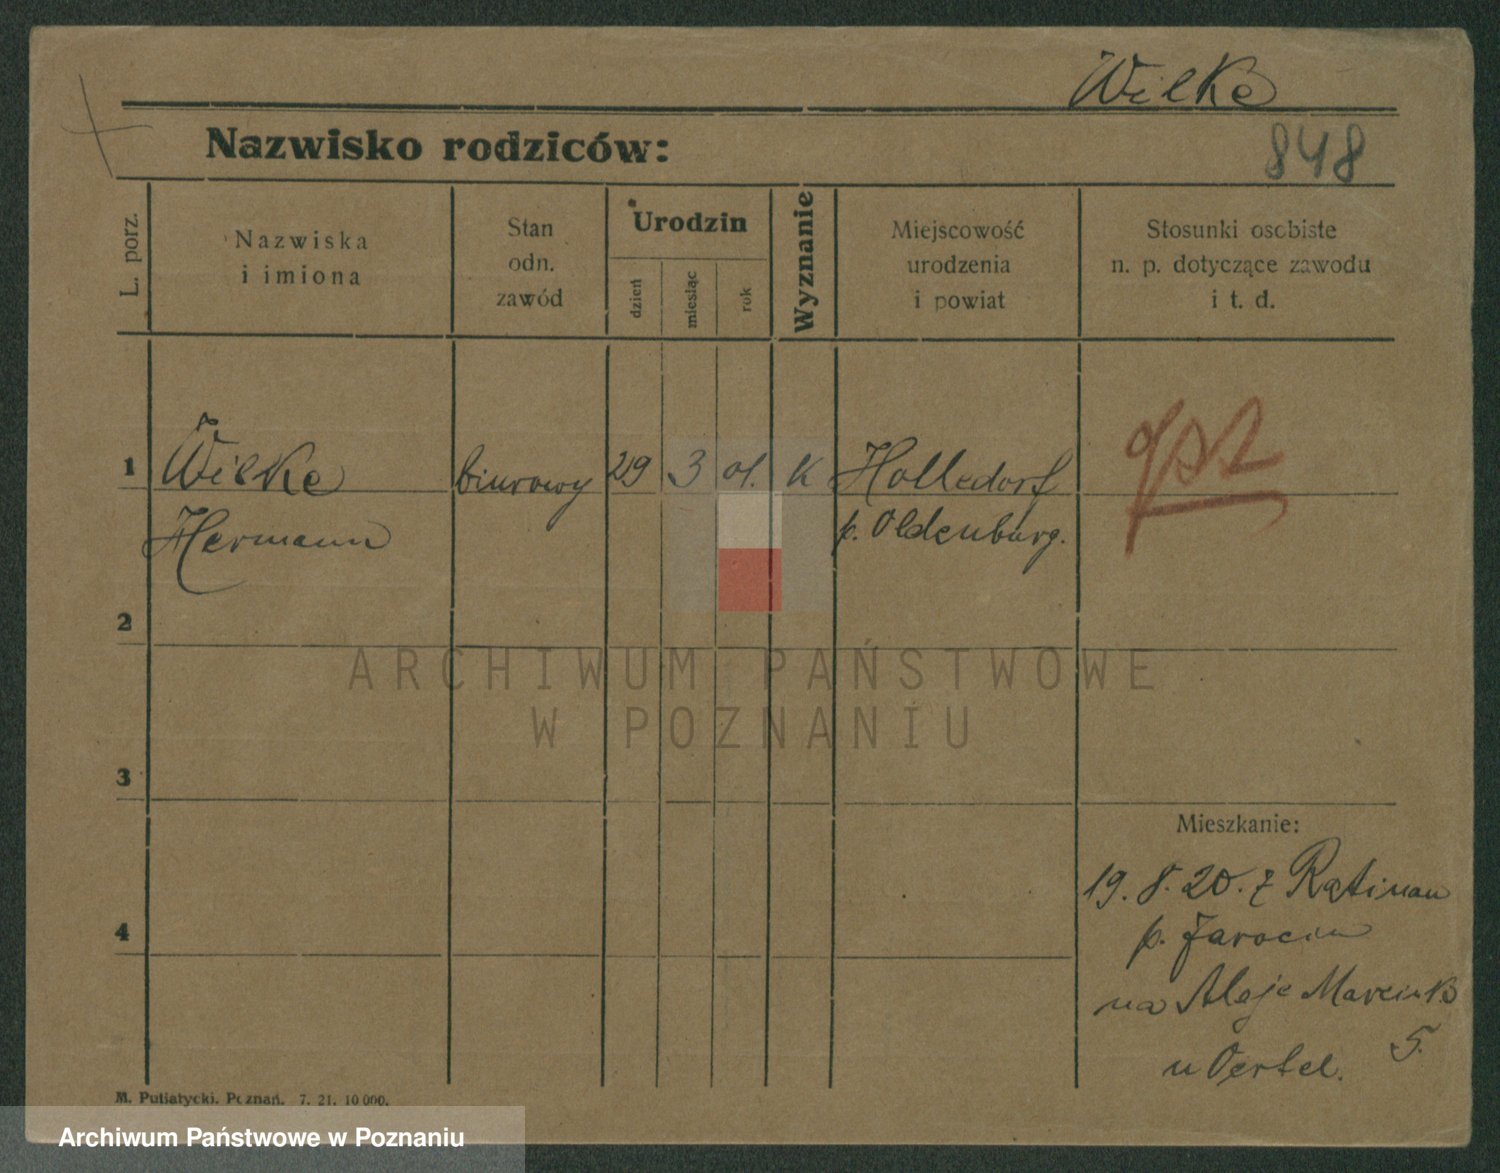 Wilke
Nazwisko rodziców:
848
L. porz.
Nazwiska
i imiona
Stan
odn.
zawód
Urodzin
dzień
miesiąc
rok
Wyznanie
Miejscowość
urodzenia
i powiat
Stosunki osobiste
n. p. dotyczące zawodu
i t. d.
1
Wilke biurowy 29 3 01. K Holledorf
Hermann p. Oldenburg.
2
ARCHIWUM PAŃSTWOWE
W POZNANIU
3
Mieszkanie:
19. 8. 20. z
4
p. Jarocin
na Aleje Marcink
5.
u Oertel.
M. Putiatycki. Poznań. 7. 21. 10 000.
Archiwum Państwowe w Poznaniu